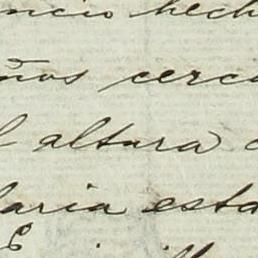 ncio hech
ños cerca
l altura c
laria esta